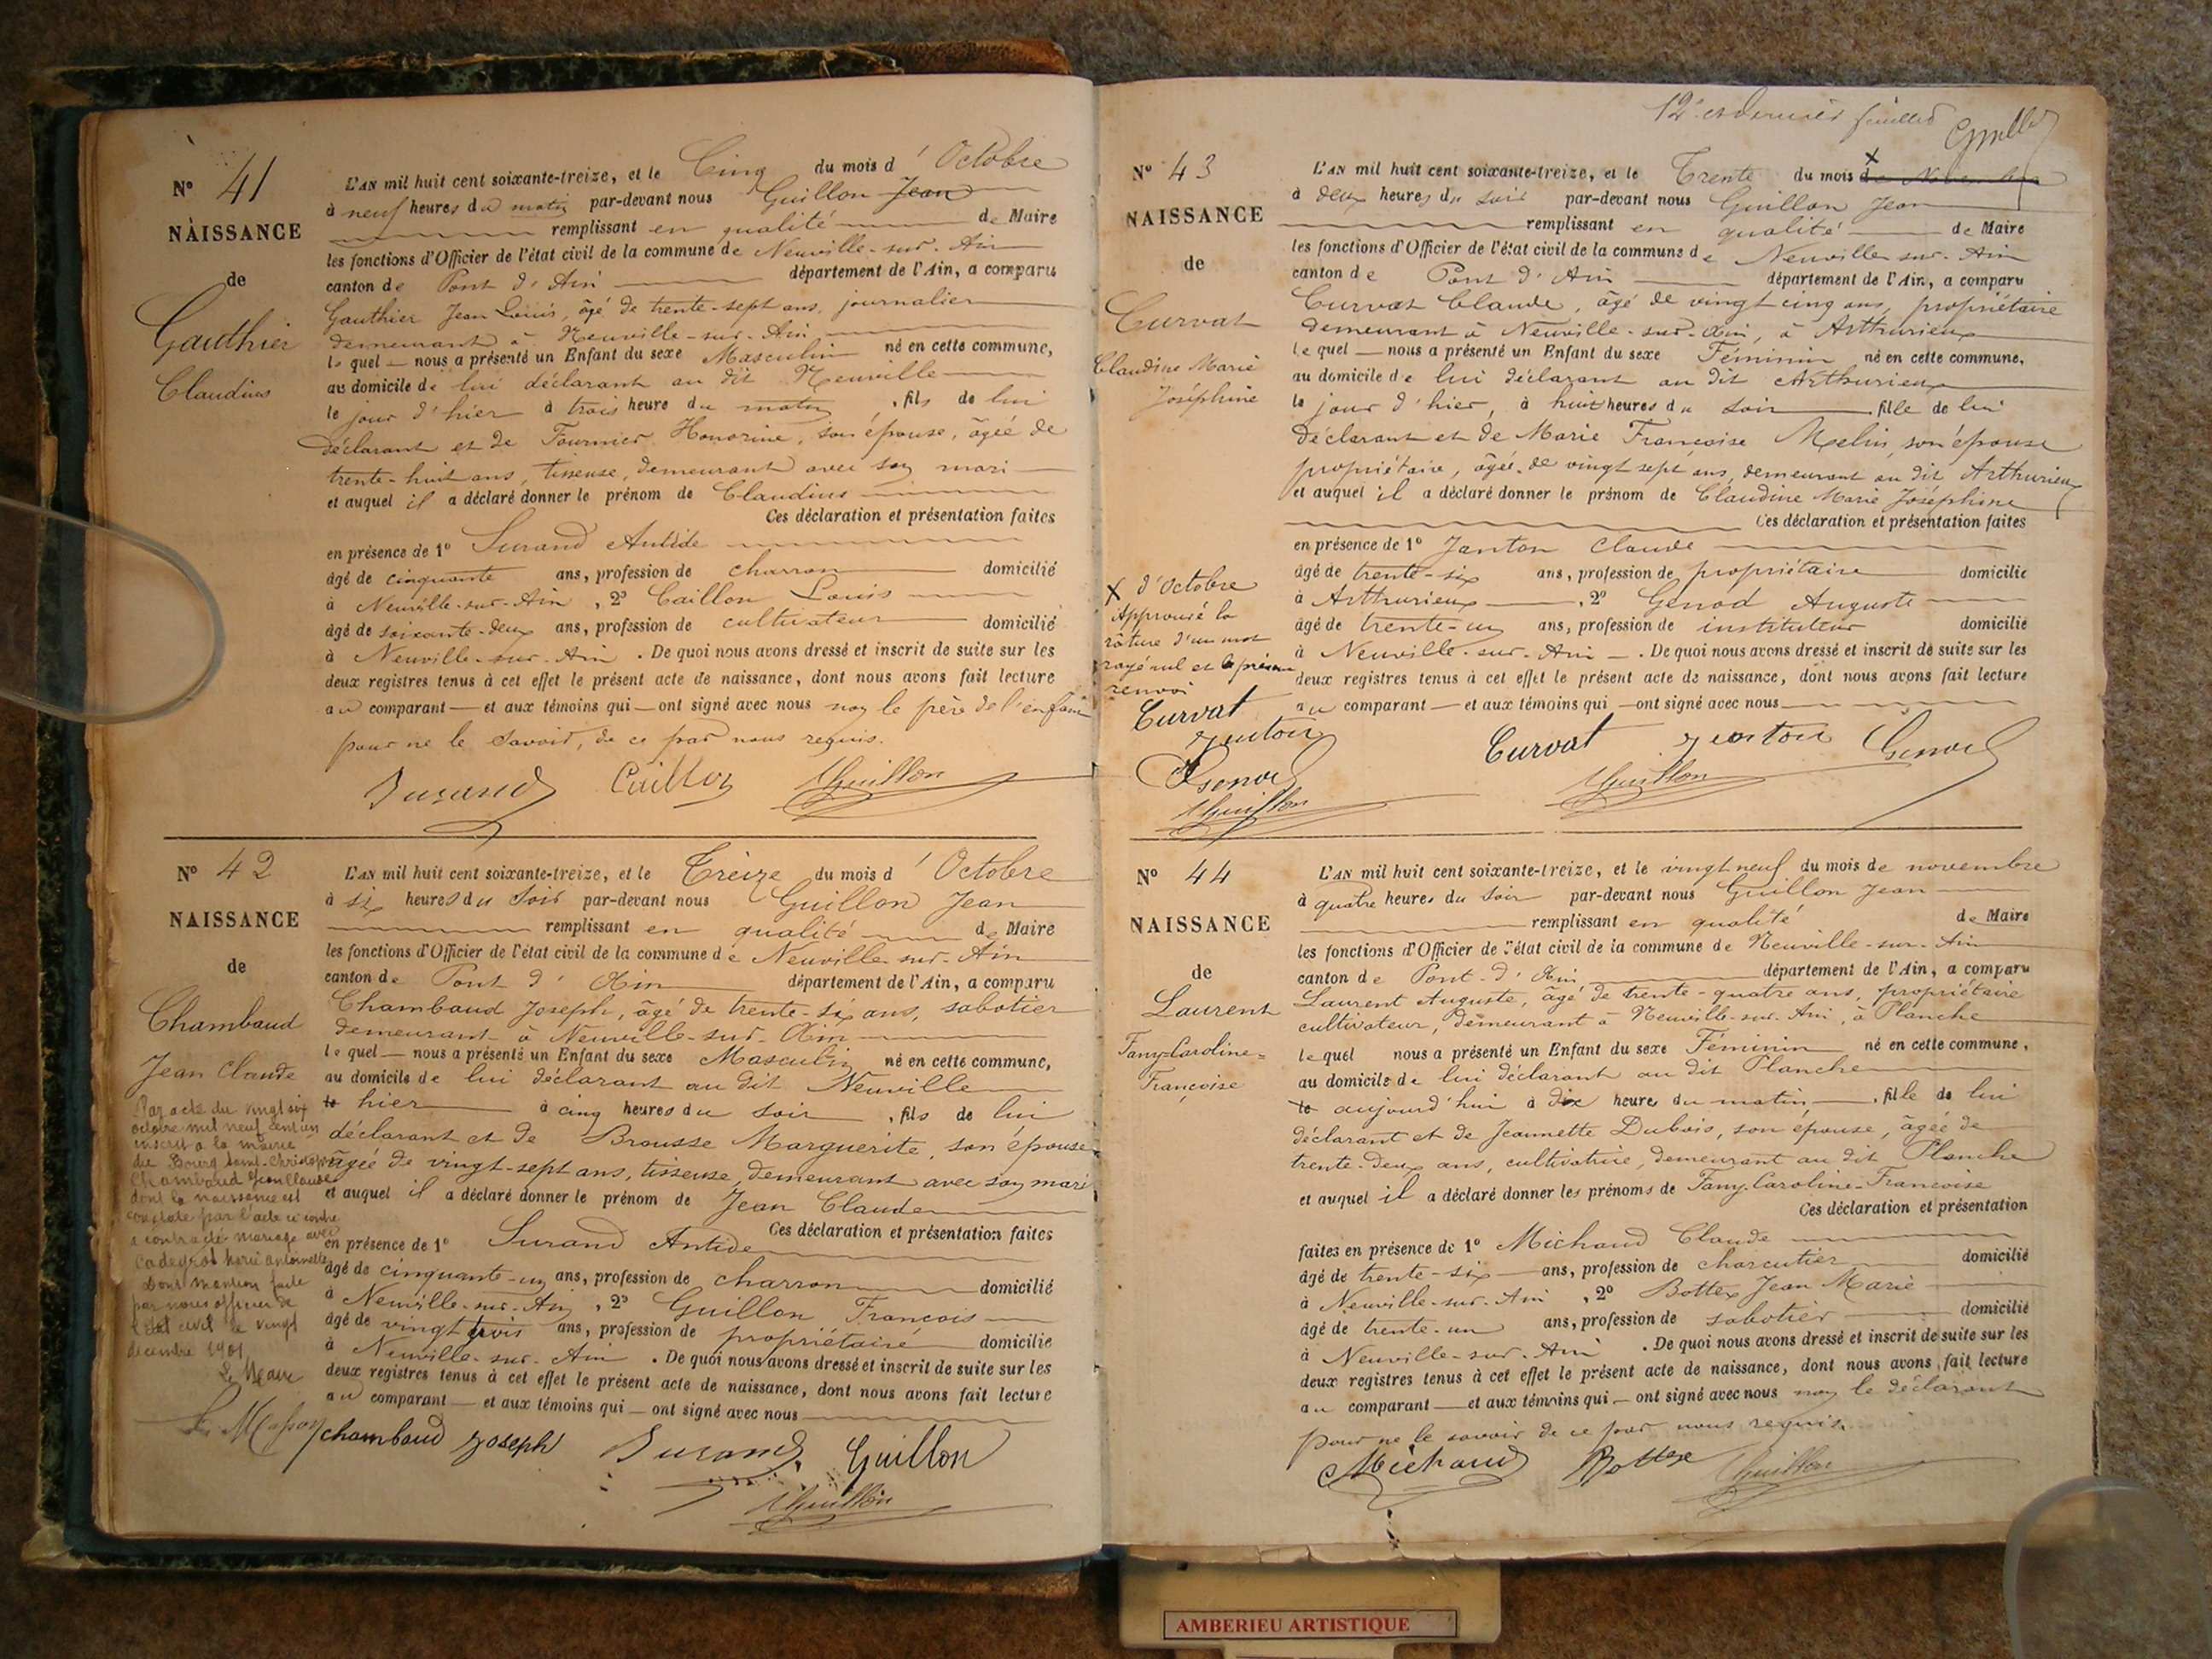 N° 41
NAISSANCE
de
Gauthier
Claudius
L'AN mil huit cent soixante-treize, et le Cinq du mois d'Octobre
à neuf heures du matin par-devant nous Guillon Jean
remplissant en qualité de Maire
les fonctions d'Officier de l'état civil de la commune de Neuville-sur-Ain
canton de Pont d'Ain département de l'Ain, a comparu
Gauthier Jean Louis, âgé de trente-sept ans, journalier
demeurant à Neuville-sur-Ain
lequel nous a présenté un Enfant du sexe Masculin né en cette commune,
au domicile de lui déclarant au dit Neuville
le jour d'hier à trois heure du matin, fils de lui
déclarant et de Fournier Honorine, son épouse, âgée de
trente-huit ans, tisseuse, demeurant avec son mari
et auquel il a déclaré donner le prénom de Claudius
Ces déclaration et présentation faites
en présence de 1° Durand Antide
âgé de cinquante ans, profession de charron domicilié
à Neuville-sur-Ain, 2° Caillon Louis
âgé de soixante-deux ans, profession de cultivateur domicilié
à Neuville-sur-Ain. De quoi nous avons dressé et inscrit de suite sur les
deux registres tenus à cet effet le présent acte de naissance, dont nous avons fait lecture
au comparant et aux témoins qui ont signé avec nous non le père de l'enfant
pour ne le savoir, de ce par nous requis.
Durand Caillon Guillon
N° 42
NAISSANCE
de
Chambaud
Jean Claude
Par acte du vingt six
octobre mil neuf cent un
inscrit à la mairie
de Bourg Saint-Christophe
Chambaud Jean Claude
dont la naissance est
constaté par l'acte ci contre
a contracté mariage avec
Cadegros Marie Antoinette
Dont mention faite
par nous officier de
l'état civil le vingt
décembre 1901
Le Maire
L'AN mil huit cent soixante-treize, et le Treize du mois d'Octobre
à six heures du soir par-devant nous Guillon Jean
remplissant en qualité de Maire
les fonctions d'Officier de l'état civil de la commune de Neuville-sur-Ain
canton de Pont d'Ain département de l'Ain, a comparu
Chambaud Joseph, âgé de trente-six ans, sabotier
demeurant à Neuville-sur-Ain
lequel nous a présenté un Enfant du sexe Masculin né en cette commune,
au domicile de lui déclarant au dit Neuville
le hier à cinq heures du soir, fils de lui
déclarant et de Brousse Marguerite, son épouse
âgée de vingt-sept ans, tisseuse, demeurant avec son mari
et auquel il a déclaré donner le prénom de Jean Claude
Ces déclaration et présentation faites
en présence de 1° Durand Antide
âgé de cinquante-un ans, profession de charron domicilié
à Neuville-sur-Ain, 2° Guillon François
âgé de vingt trois ans, profession de propriétaire domicilié
à Neuville-sur-Ain. De quoi nous avons dressé et inscrit de suite sur les
deux registres tenus à cet effet le présent acte de naissance, dont nous avons fait lecture
au comparant et aux témoins qui ont signé avec nous
chambaud Joseph Durand Guillon
Guillon
12e et dernier feuillet
N° 43
NAISSANCE
de
Curvat
Claudine Marie
Joséphine
X d'Octobre
Approuvé la
râture d'un mot
rayé nul et le présent
renvoi
Curvat
Janton
Genod
Guillon
L'AN mil huit cent soixante-treize, et le Trente du mois de Novembre X
à deux heures du soir par-devant nous Guillon Jean
remplissant en qualité de Maire
les fonctions d'Officier de l'état civil de la commune de Neuville-sur-Ain
canton de Pont d'Ain département de l'Ain, a comparu
Curvat Claude, âgé de vingt cinq ans, propriétaire
demeurant à Neuville-sur-Ain, à Arthurieux
lequel nous a présenté un Enfant du sexe Féminin né en cette commune,
au domicile de lui déclarant au dit Arthurieux
le jour d'hier, à huit heures du soir fille de lui
déclarant et de Marie Françoise Melin, son épouse
propriétaire, âgée de vingt sept ans, demeurant au dit Arthurieux
et auquel il a déclaré donner le prénom de Claudine Marie Joséphine
Ces déclaration et présentation faites
en présence de 1° Janton Claude
âgé de trente-six ans, profession de propriétaire domicilié
à Arthurieux, 2° Genod Auguste
âgé de trente-un ans, profession de instituteur domicilié
à Neuville-sur-Ain. De quoi nous avons dressé et inscrit de suite sur les
deux registres tenus à cet effet le présent acte de naissance, dont nous avons fait lecture
au comparant et aux témoins qui ont signé avec nous
Curvat Janton Genod
Guillon
N° 44
NAISSANCE
de
Laurent
Fany-Caroline=
Françoise
L'AN mil huit cent soixante-treize, et le vingt neuf du mois de novembre
à quatre heures du soir par-devant nous Guillon Jean
remplissant en qualité de Maire
les fonctions d'Officier de l'état civil de la commune de Neuville-sur-Ain
canton de Pont-d'Ain département de l'Ain, a comparu
Laurent Auguste, âgé de trente-quatre ans, propriétaire
cultivateur, demeurant à Neuville-sur-Ain, à Planche
lequel nous a présenté un Enfant du sexe Féminin né en cette commune,
au domicile de lui déclarant au dit Planche
le aujourd'hui à dix heures du matin, fille de lui
déclarant et de Jeannette Dubois, son épouse, âgée de
trente-deux ans, cultivatrice, demeurant au dit Planche
et auquel il a déclaré donner les prénoms de Fany-Caroline-Françoise
Ces déclaration et présentation
faites en présence de 1° Michaud Claude
âgé de trente-six ans, profession de charcutier domicilié
à Neuville-sur-Ain, 2° Bottex Jean Marie
âgé de trente-un ans, profession de sabotier domicilié
à Neuville-sur-Ain. De quoi nous avons dressé et inscrit de suite sur les
deux registres tenus à cet effet le présent acte de naissance, dont nous avons fait lecture
au comparant et aux témoins qui ont signé avec nous non le déclarant
pour ne le savoir de ce par nous requis.
Michaud Bottex Guillon
AMBERIEU ARTISTIQUE